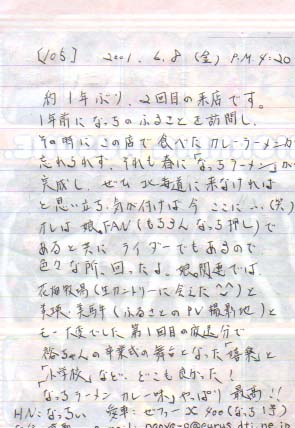 [105] 2001. 6. 8 (金) P.M. 4:20
約1年ぶり、2回目の来店です。
1年前になっちのふるさとを訪問し、
その時にこの店で食べたカレーラーメンが
忘れられず、それも春に「なっちラーメン」が
完成し、ぜひ北海道に来なければ
と思い立ち、気が付けば今ここに…(笑)
オレは娘。FAN(もちろんなっち押し)で
あると共にライダーでもあるので
色々な所、回ったよ。娘。関連では、
花畑牧場(生カントリーに会えた^^)と
美瑛、美馬牛(ふるさとのPV撮影地)と
モー大変でした第1回目の放送分で
裕ちゃんの卒業式の舞台となった
「小学校」など…どこも良かった!
なっちラーメンカレー味、やっぱり最高!!
HN:なっちぃ 愛車:ゼファーχ400(なっち1号)